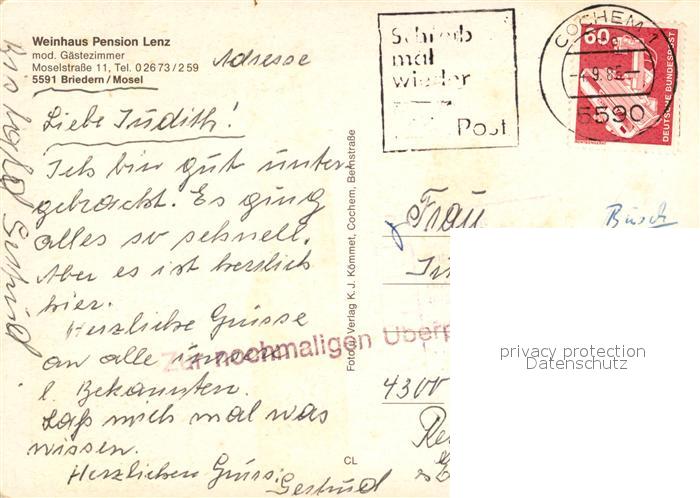 Weinhaus Pension Lenz
mod. Gästezimmer
Moselstraße 11, Tel. 02673/259
5591 Briedern/Mosel
Adresse
Liebe Judith!
Ich bin gut unter-
gebracht. Es ging
alles so schnell.
Aber es ist herzlich
hier.
Herzliche Grüsse
an alle unsere
l. Bekannten.
Laß mich mal was
wissen.
Herzlichen Gruss
Gertrud
Foto u. Verlag K. J. Kömmet, Cochem, Bernstraße
CL
Schreib
mal
wieder
Post
COCHEM 1
9.86
5590
60
DEUTSCHE BUNDESPOST
Frau
Busch
Zur nochmaligen Überp
4300
privacy protection
Datenschutz